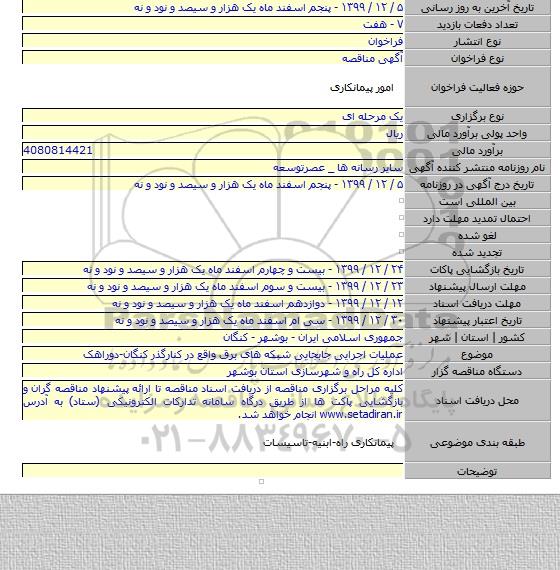 تاریخ آخرین به روز رسانی ۵ / ۱۲ / ۱۳۹۹ - پنجم اسفند ماه یک هزار و سیصد و نود و نه
تعداد دفعات بازدید ۷ - هفت
نوع انتشار فراخوان
نوع فراخوان آگهی مناقصه
حوزه فعالیت فراخوان امور پیمانکاری
نوع برگزاری یک مرحله ای
واحد پولی برآورد مالی ریال
برآورد مالی 4080814421
نام روزنامه منتشر کننده آگهی سایر رسانه ها _ عصرتوسعه
تاریخ درج آگهی در روزنامه ۵ / ۱۲ / ۱۳۹۹ - پنجم اسفند ماه یک هزار و سیصد و نود و نه
بین المللی است
احتمال تمدید مهلت دارد
لغو شده
تجدید شده
تاریخ بازگشایی پاکات ۲۴ / ۱۲ / ۱۳۹۹ - بیست و چهارم اسفند ماه یک هزار و سیصد و نود و نه
مهلت ارسال پیشنهاد ۲۳ / ۱۲ / ۱۳۹۹ - بیست و سوم اسفند ماه یک هزار و سیصد و نود و نه
مهلت دریافت اسناد ۱۲ / ۱۲ / ۱۳۹۹ - دوازدهم اسفند ماه یک هزار و سیصد و نود و نه
تاریخ اعتبار پیشنهاد ۳۰ / ۱۲ / ۱۳۹۹ - سی ام اسفند ماه یک هزار و سیصد و نود و نه
کشور | استان | شهر جمهوری اسلامی ایران - بوشهر - کنگان
موضوع عملیات اجرایی جابجایی شبکه های برق واقع در کنارگذر کنگان-دوراهک
دستگاه مناقصه گزار اداره کل راه و شهرسازی استان بوشهر
محل دریافت اسناد کلیه مراحل برگزاری مناقصه از دریافت اسناد مناقصه تا ارائه پیشنهاد مناقصه گران و
بازگشایی پاکت ها از طریق درگاه سامانه تدارکات الکترونیکی (ستاد) به آدرس
www.setadiran.ir انجام خواهد شد.
طبقه بندی موضوعی پیمانکاری راه-ابنیه-تاسیسات
توضیحات
۰۲۱-۸۸۳۴۹۶۷۰-۵